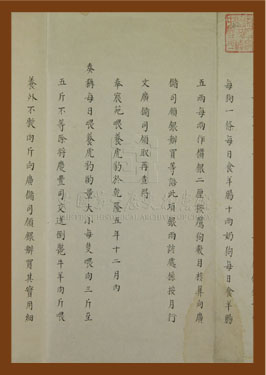 每狗一條每日食羊腸十兩奶狗每日食羊腸
五兩每兩作價銀一厘按鷹狗數目核算向廣
儲司領銀辦買等語此項銀兩該處係按月行
文廣儲司領取再查得
奉宸苑喂養虎豹於乾隆五年十二月內
奏稱每日喂養虎豹酌量大小每隻喂肉三斤至
五斤不等除將慶豐司交送倒斃牛羊肉斤喂
養外不敷肉斤向廣儲司領銀辦買其實用細